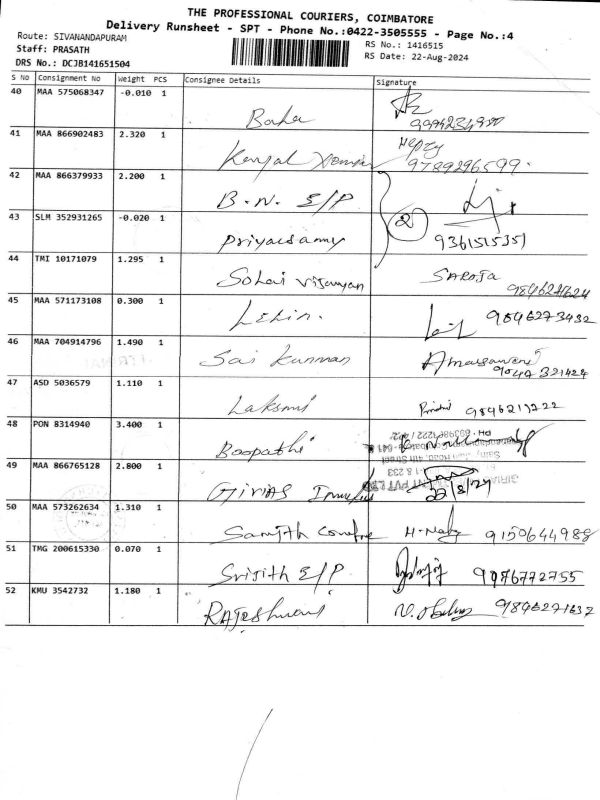 THE PROFESSIONAL COURIERS, COIMBATORE
Delivery Runsheet - SPT - Phone No.:0422-3505555 - Page No.:4
Route: SIVANANDAPURAM
RS No.: 1416515
Staff: PRASATH
RS Date: 22-Aug-2024
DRS No.: DCJB141651504
S No Consignment No Weight PCS Consignee Details Signature
40 MAA 575068347 -0.010 1
Baba
41 MAA 866902483 2.320 1 Hepzy
9789296599.
42 MAA 866379933 2.200 1
B.N. E/P
43 SLM 352931265 -0.020 1 2
Priyadsamy 9361515351
44 TMI 10171079 1.295 1 SAROJA
Vijayan
45 MAA 571173108 0.300 1
Lelin. 9846273432
46 MAA 704914796 1.490 1
Sai Kannan
47 ASD 5036579 1.110 1
Laksmi
48 PON 8314940 3.400 1
Boopathi
49 MAA 866765128 2.800 1
22/8/24
50 MAA 573262634 1.310 1
9150644988
51 TMG 200615330 0.070 1
Srijith E/P
52 KMU 3542732 1.180 1
Rajeshwari 9846271637